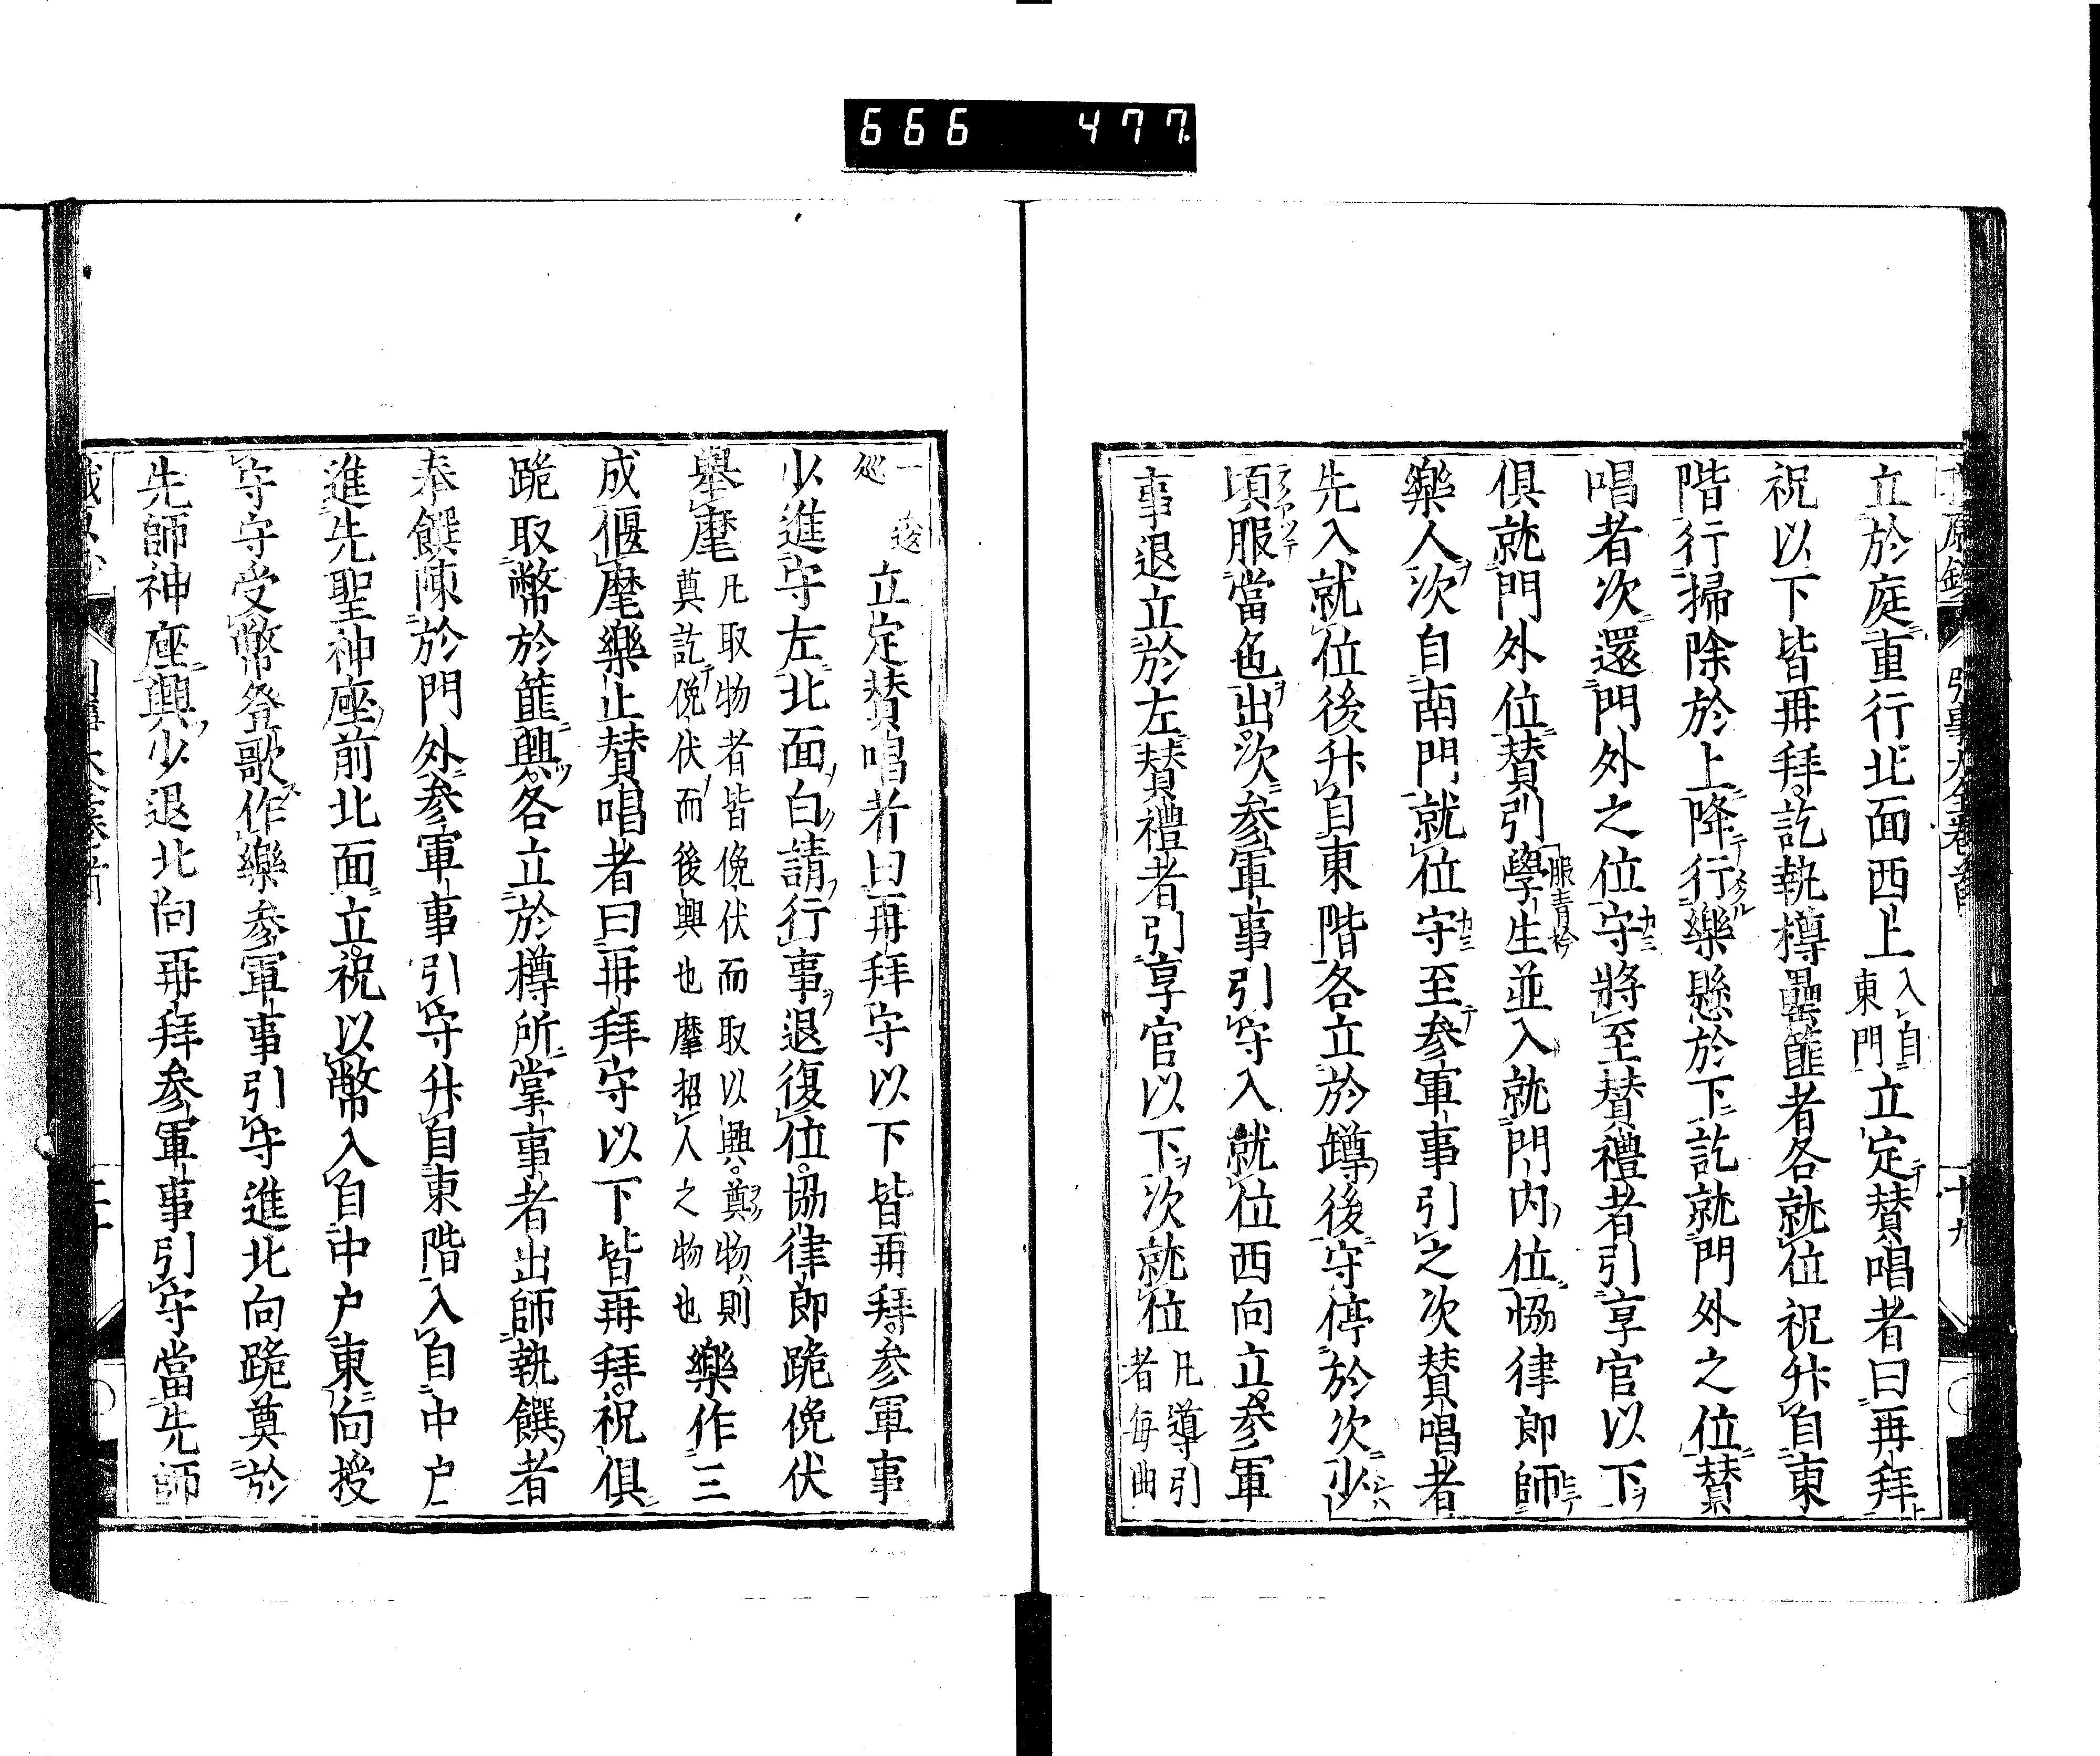 666 477
立於庭重行北面西上入自東門立定賛唱者曰再拜
祝以下皆再拜訖執樽罍篚者各就位祝升自東
階行掃除於上降行樂懸於下訖就門外之位賛
唱者次還門外之位守將至賛禮者引享官以下
俱就門外位賛引學生並入就門内位協律郎師
服青衿
樂人次自南門就位守至参軍事引之次賛唱者
先入就位後升自東階各立於罇後守停於次少
頃服當色出次参軍事引守入就位西向立参軍
事退立於左賛禮者引享官以下次就位凡導引者每曲
一逡巡立定賛唱者曰再拜守以下皆再拜参軍事
少進守左北面白請行事退復位協律郎跪俛伏
舉麾凡取物者皆俛伏而取以興奠物則奠訖俛伏而後興也麾招人之物也樂作三
成偃麾樂止賛唱者曰再拜守以下皆再拜祝俱
跪取幣於篚興各立於樽所掌事者出師執饌者
奉饌陳於門外参軍事引守升自東階入自中戸
進先聖神座前北面立祝以幣入自中戸東向授
守守受幣登歌作樂参軍事引守進北向跪奠於
先師神座興少退北向再拜参軍事引守當先師
十九